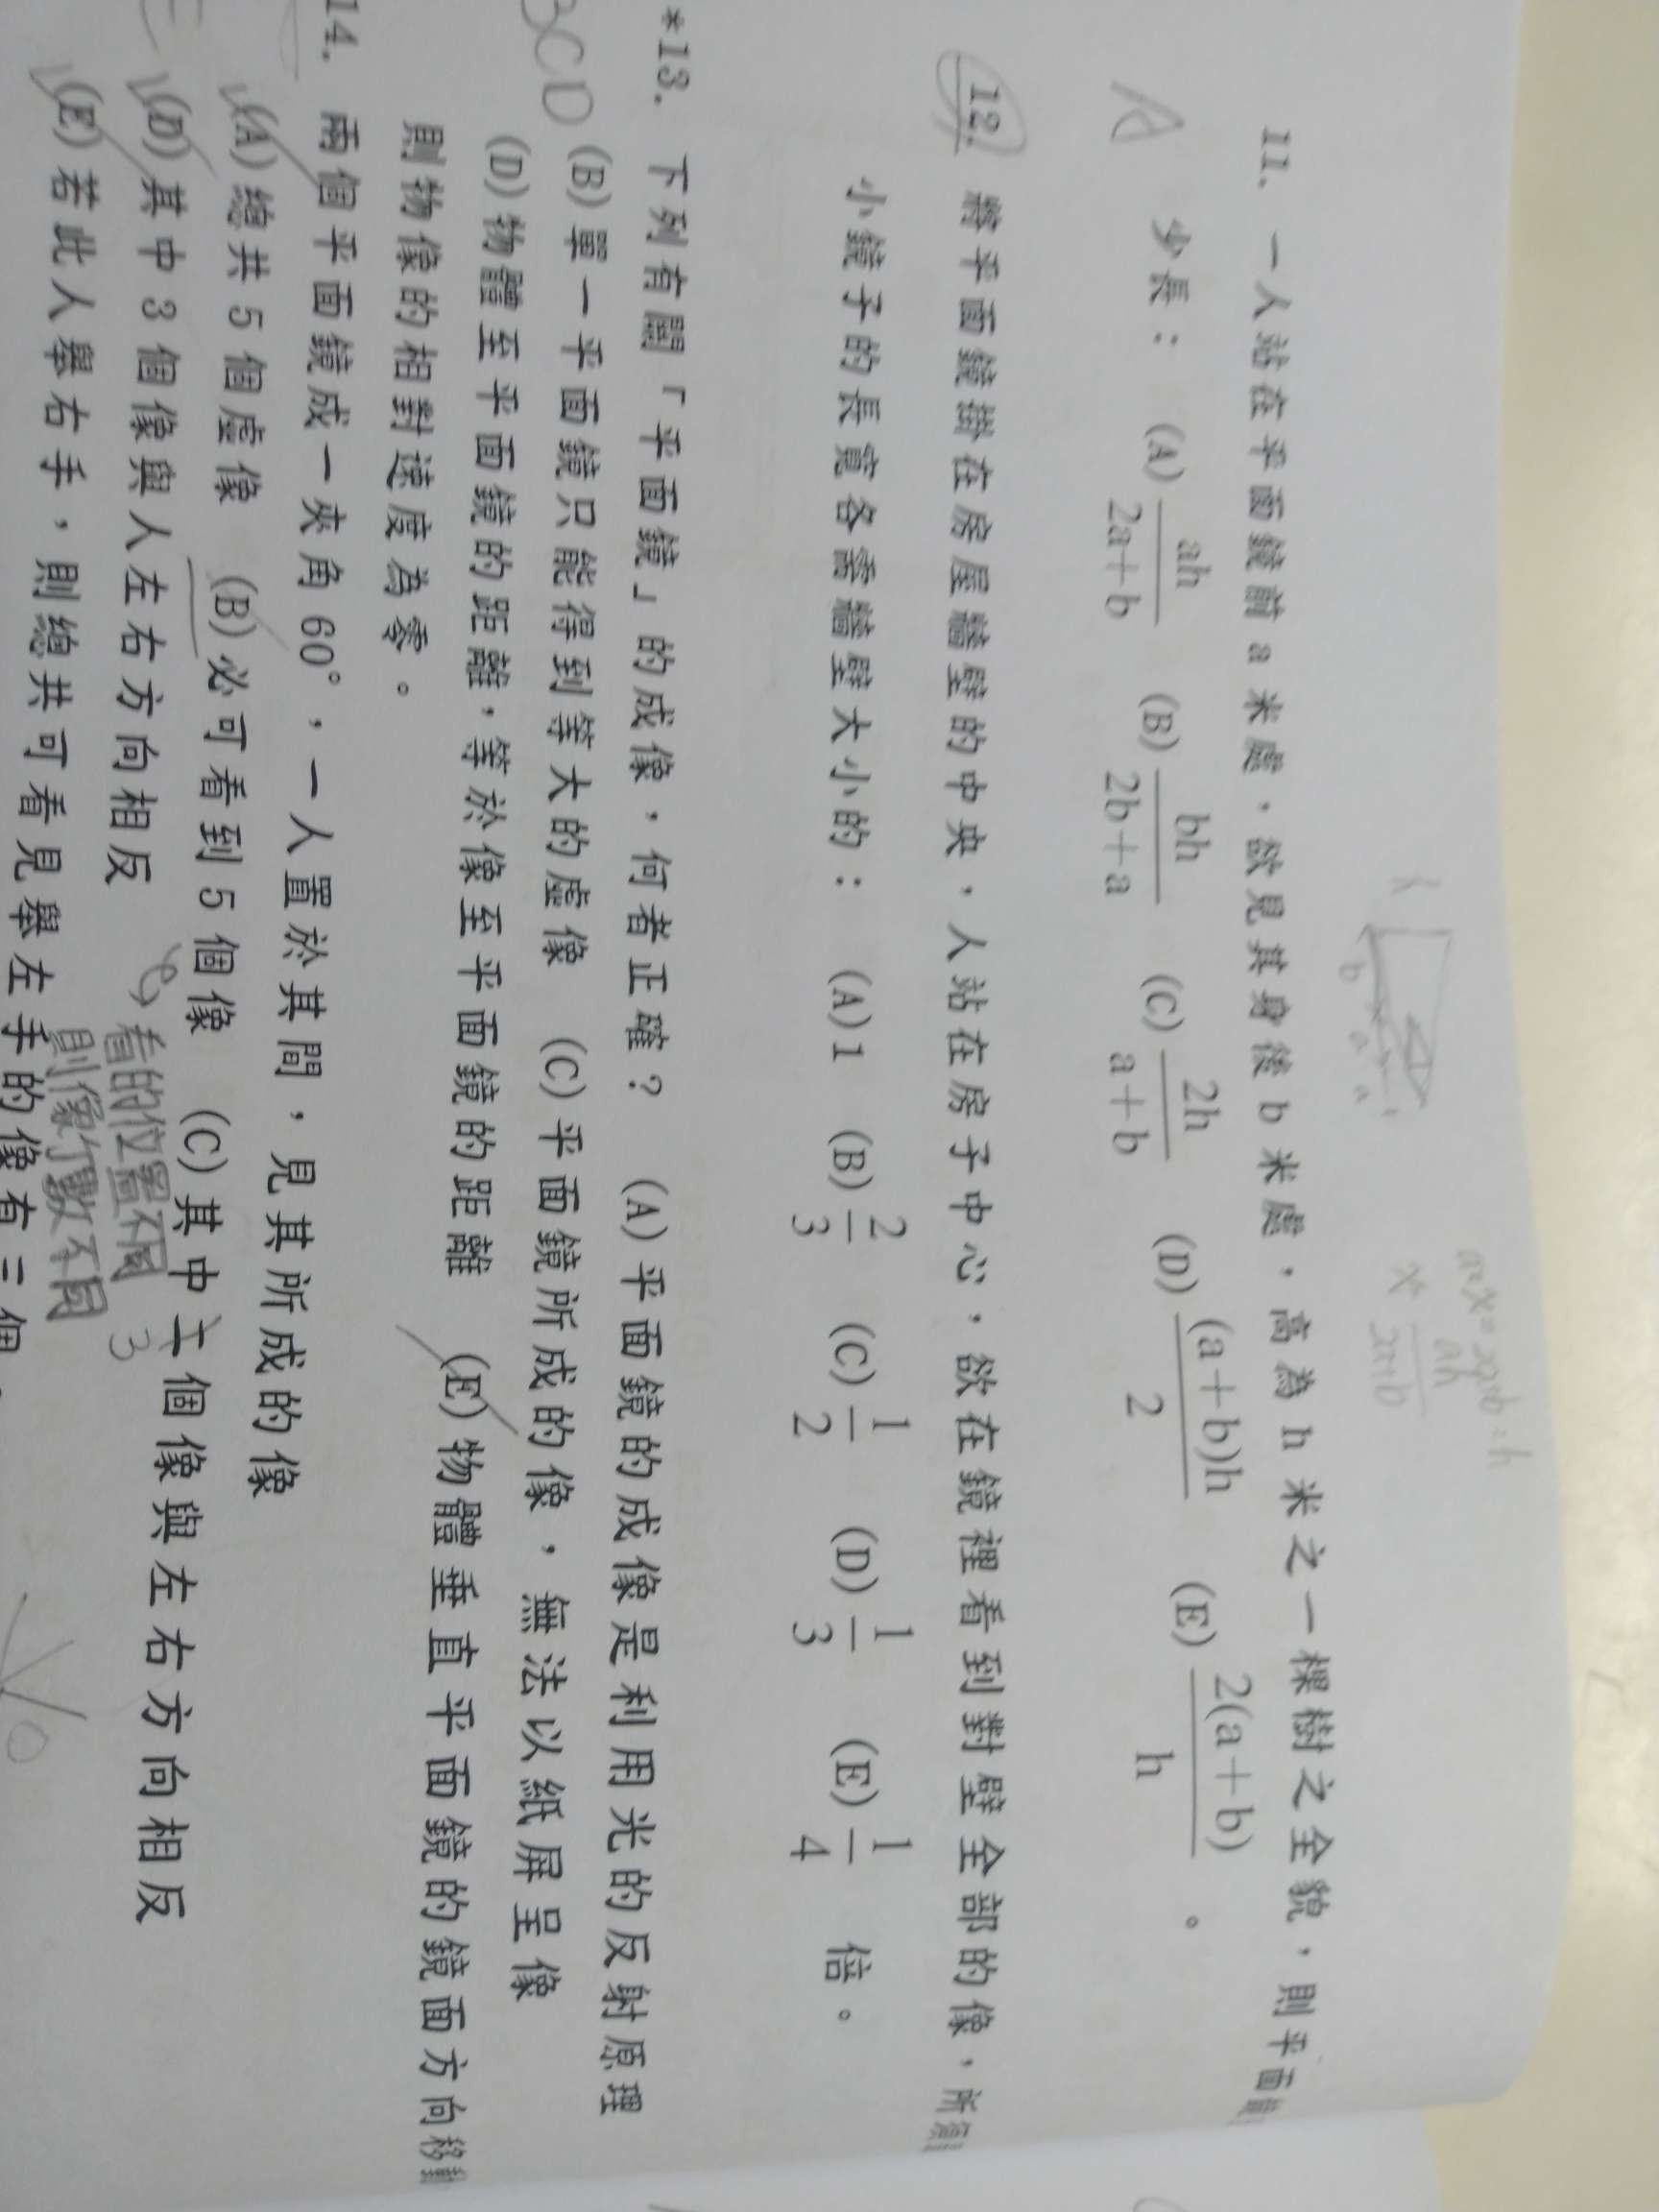 11. 一人站在平面鏡前 a 米處，欲見其身後 b 米處，高為 h 米之一棵樹之全貌，則平面
少長： (A) ah/2a+b (B) bh/2b+a (C) 2h/a+b (D) (a+b)h/2 (E) 2(a+b)/h 。
A
12. 將平面鏡掛在房屋牆壁的中央，人站在房子中心，欲在鏡裡看到對壁全部的像，所
小鏡子的長寬各需牆壁大小的： (A) 1 (B) 2/3 (C) 1/2 (D) 1/3 (E) 1/4 倍。
*13. 下列有關「平面鏡」的成像，何者正確？ (A) 平面鏡的成像是利用光的反射原理
(B) 單一平面鏡只能得到等大的虛像 (C) 平面鏡所成的像，無法以紙屏呈像
BCD
(D) 物體至平面鏡的距離，等於像至平面鏡的距離 (E) 物體垂直平面鏡的鏡面方向移動
則物像的相對速度為零。
14. 兩個平面鏡成一夾角 60°，一人置於其間，見其所成的像
(A) 總共 5 個虛像 (B) 必可看到 5 個像 (C) 其中三個像與左右方向相反
(D) 其中 3 個像與人左右方向相反
看的位置不同 3
則像個數不同
(E) 若此人舉右手，則總共可看見舉左手的像有三個。